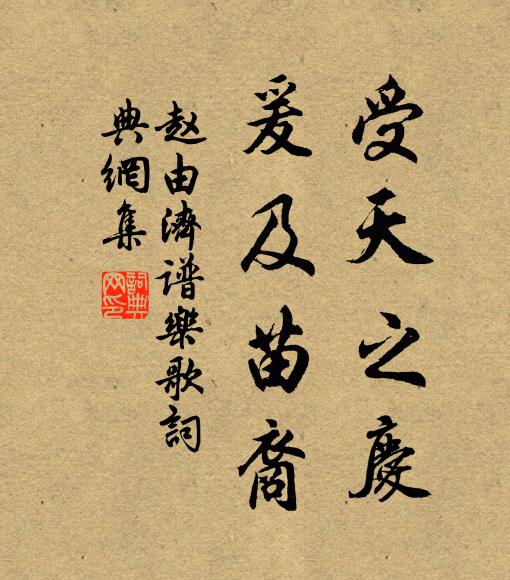 受天之慶
爰及苗裔
赵由濟谱樂歌詞
典網集
詞典
网印